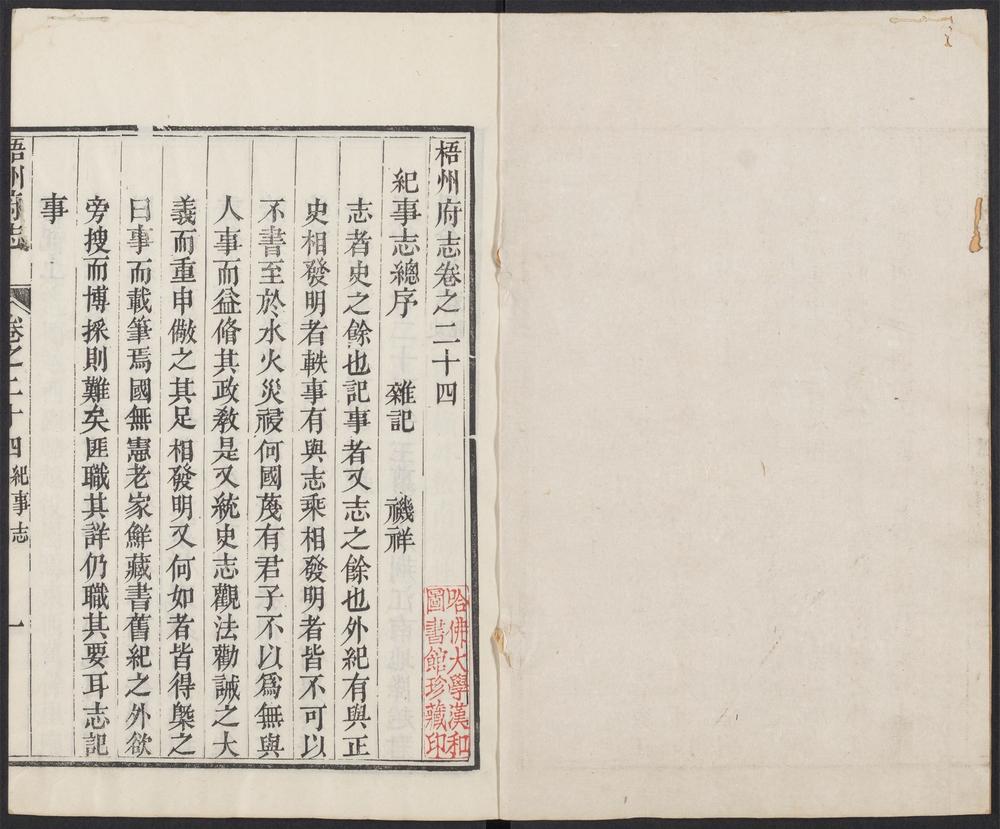 梧州府志卷之二十四
紀事志總序　雜記　禨祥
志者史之餘也記事者又志之餘也外紀有與正
史相發明者軼事有與志乘相發明者皆不可以
不書至於水火災祲何國蔑有君子不以爲無與
人事而益脩其政教是又統史志觀法勸誡之大
義而重申儆之其足相發明又何如者皆得槩之
曰事而載筆焉國無憲老家鮮藏書舊紀之外欲
旁搜而博採則難矣匪職其詳仍職其要耳志記
事
梧州府志　卷之二十四　紀事志　一
哈佛大學漢和
圖書館珍藏印